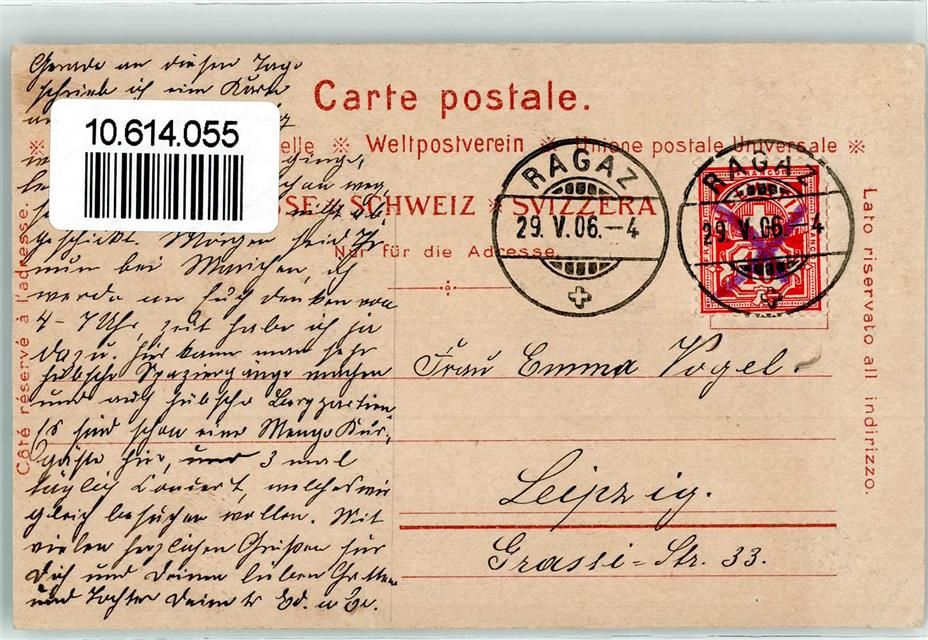 Gerade an diesen Tage
schrieb ich eine Karte
10.614.055
Carte postale.
Weltpostverein ※ Union postale Universale ※
SCHWEIZ ※ SVIZZERA
Nur für die Adresse
RAGAZ
29.V.06.-4
RAGAZ
29.V.06.-4
Côté réservé à l'adresse.
Lato riservato all indirizzo.
geschickt. Morgen seid Ihr
nun bei Mariechen, ich
werde an Euch denken von
4-7 Uhr, Zeit habe ich ja
dazu. Hier kann man sehr
hübsche Spaziergänge machen
und auch hübsche Bergpartien
Es sind schon eine Menge Kur-
gäste hier, und 3 mal
täglich Concert, welches wir
gleich besuchen wollen. Mit
vielen herzlichen Grüßen für
Dich und Deinen lieben Gatten
und Tochter Deine
Frau Emma Vogel.
Leipzig.
Grassi-Str. 33.